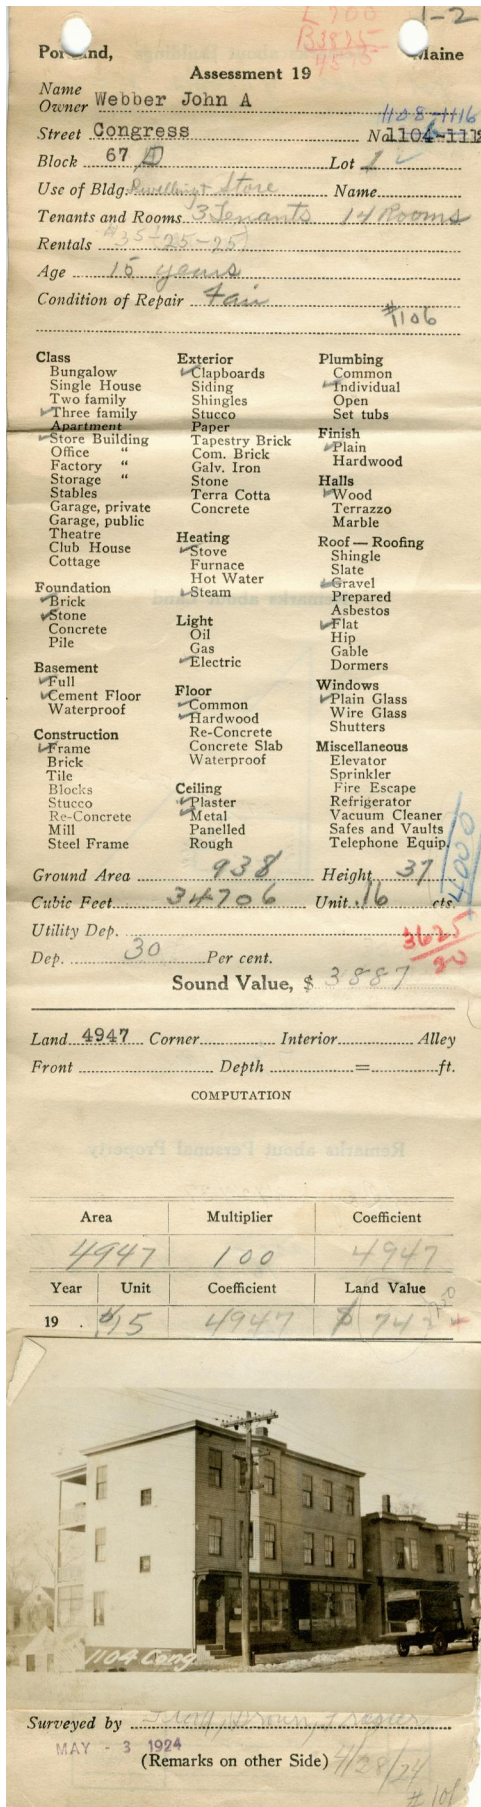 L 700 1-2
B 3875
4575
Portland, Maine
Assessment 19
Name
Owner Webber John A
1108-1116
Street Congress No 1104-1118
Block 67 A Lot 1
Use of Bldg. Dwelling & Store Name
Tenants and Rooms 3 Tenants 14 Rooms
Rentals $35-25-25
Age 15 years
Condition of Repair Fair
#1106
Class
Bungalow
Single House
Two family
Three family
Apartment
Store Building
Office "
Factory "
Storage "
Stables
Garage, private
Garage, public
Theatre
Club House
Cottage
Foundation
Brick
Stone
Concrete
Pile
Basement
Full
Cement Floor
Waterproof
Construction
Frame
Brick
Tile
Blocks
Stucco
Re-Concrete
Mill
Steel Frame
Exterior
Clapboards
Siding
Shingles
Stucco
Paper
Tapestry Brick
Com. Brick
Galv. Iron
Stone
Terra Cotta
Concrete
Heating
Stove
Furnace
Hot Water
Steam
Light
Oil
Gas
Electric
Floor
Common
Hardwood
Re-Concrete
Concrete Slab
Waterproof
Ceiling
Plaster
Metal
Panelled
Rough
Plumbing
Common
Individual
Open
Set tubs
Finish
Plain
Hardwood
Halls
Wood
Terrazzo
Marble
Roof — Roofing
Shingle
Slate
Gravel
Prepared
Asbestos
Flat
Hip
Gable
Dormers
Windows
Plain Glass
Wire Glass
Shutters
Miscellaneous
Elevator
Sprinkler
Fire Escape
Refrigerator
Vacuum Cleaner
Safes and Vaults
Telephone Equip.
4000
Ground Area 938 Height 37
Cubic Feet 34706 Unit .16 cts.
Utility Dep.
3625
80
Dep. 30 Per cent.
Sound Value, $ 3887
Land 4947 Corner Interior Alley
Front Depth = ft.
COMPUTATION
Area Multiplier Coefficient
4947 100 4947
Year Unit Coefficient Land Value
19 . $15 4947 $ 742
1104 Cong
Surveyed by
MAY - 3 1924
(Remarks on other Side) 4/28/24